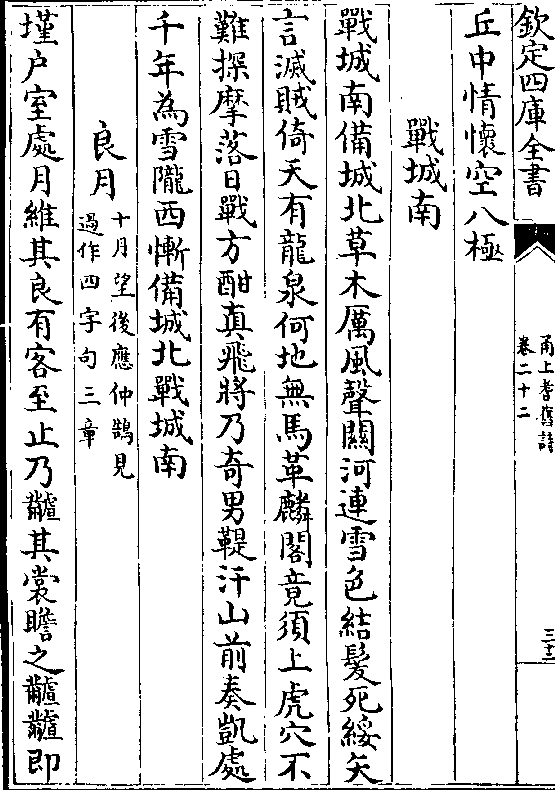 欽定四庫全書
甬上耆舊詩
卷二十二
三十二
丘中情懷空八極
戰城南
戰城南備城北草木厲風聲關河連雪色結髪死綏矢
言滅賊倚天有龍泉何地無馬革麟閣竟須上虎穴不
難探摩落日戰方酣真飛將乃奇男鞮汗山前奏凱處
千年為雪隴西慚備城北戰城南
良月
十月望後應仲鵠見
過作四字句三章
墐户室處月維其良有客至止乃䵻其裳瞻之䵻䵻即